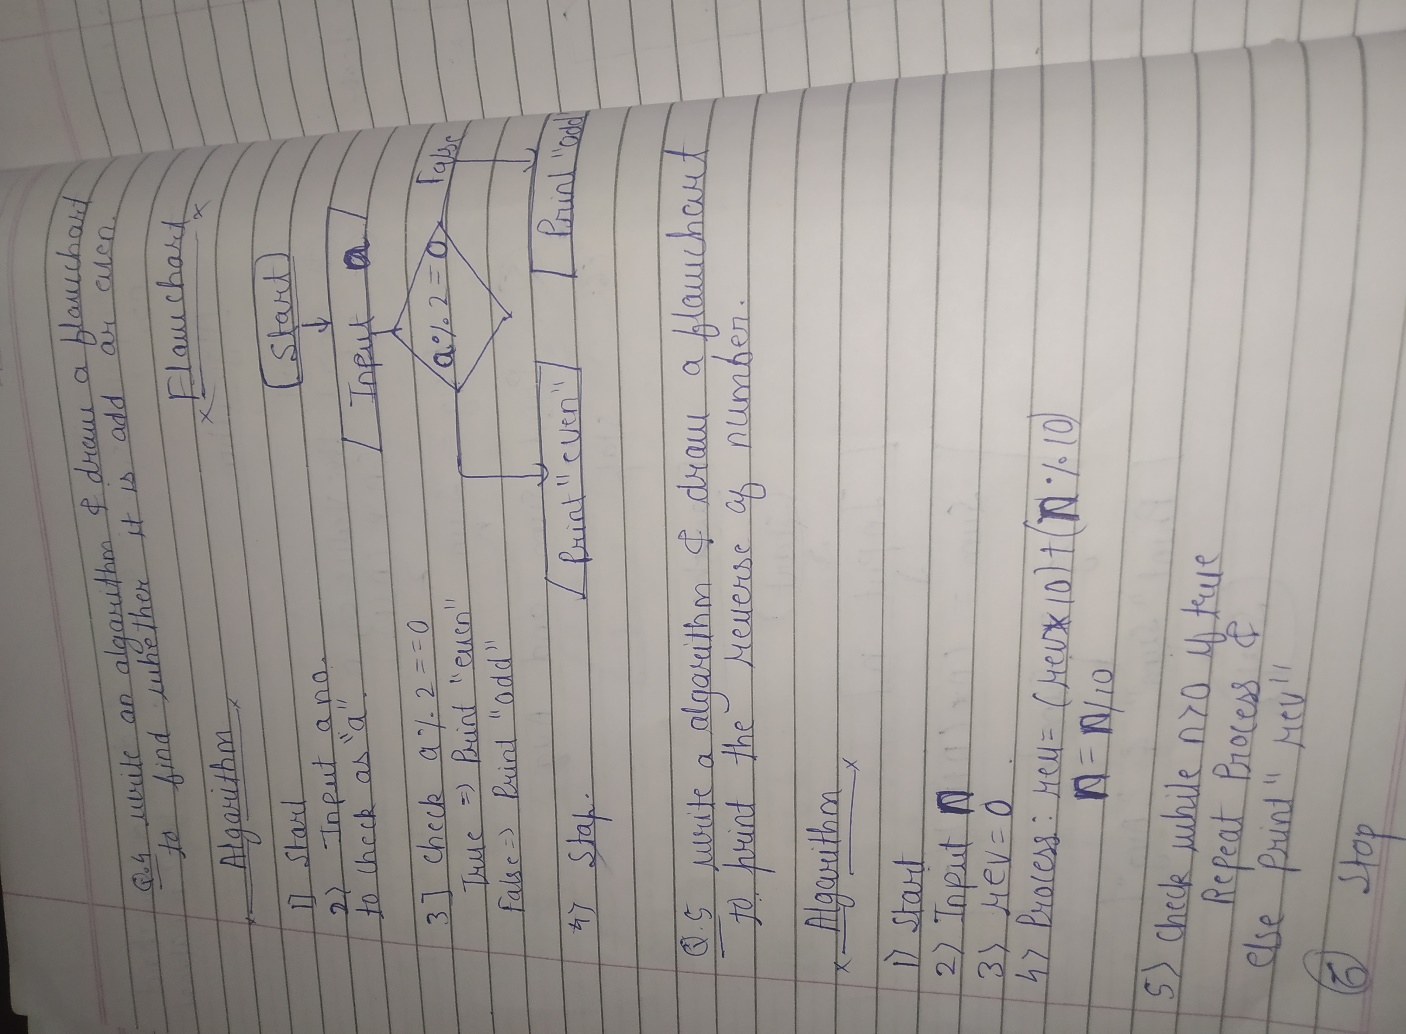 Q.4 write an algarithm & draw a flawchart
to find whether it is add ar even.
Algarithm
1] Start
2) Input a no.
to check as "a"
3] check a % 2 == 0
True => Print "even"
False => Print "odd"
4) Stap.
Flawchart
Start
Input a
a % 2 = 0
False
Print "even"
Print "odd"
Q.5 write a algarithm & draw a flawchart
to print the reverse of number.
Algarithm
1) Start
2) Input n
3) rev = 0
4) Process: rev = (rev x 10) + (n % 10)
n = n/10
5) Check while n>0 if true
Repeat Process &
else Print "rev"
6 Stop